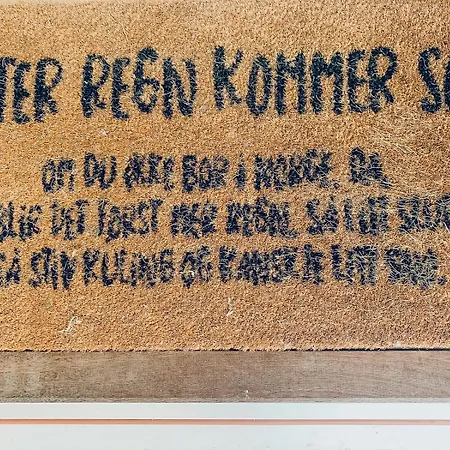 TER REGN KOMMER S
OM DU IKKE BOR I NORGE. DA
BLIR DET FØRST MER REGN, SÅ LITT SLUDD
SÅ STIV KULING OG KANSKJE LITT SNØ.